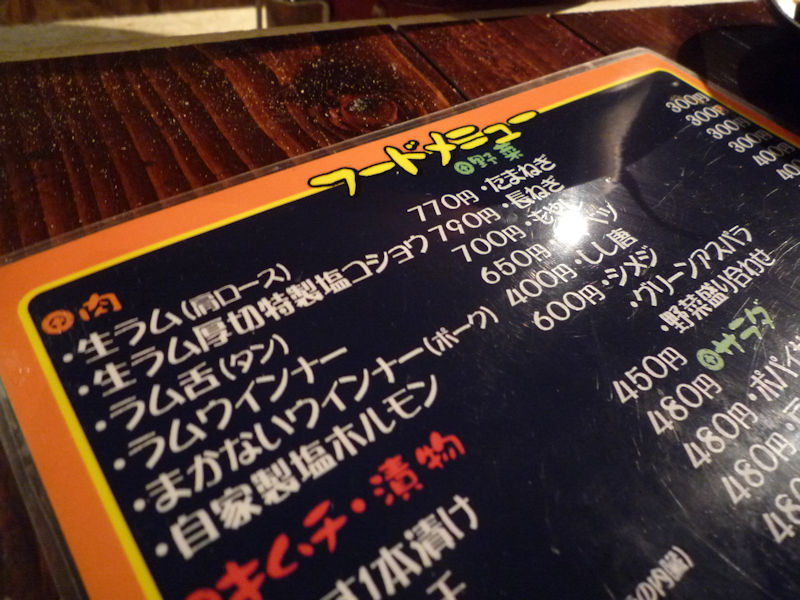 フードメニュー
肉
・生ラム(肩ロース) 770円
・生ラム厚切特製塩コショウ 790円
・ラム舌(タン) 700円
・ラムウインナー 650円
・まかないウィンナー(ポーク) 400円
・自家製塩ホルモン 600円
キムチ・漬物
1本漬け 450円
480円
480円
480円
の内臓)
野菜
・たまねぎ 300円
・長ねぎ 300円
・もやし 300円
300円
・しし唐 400円
・シメジ
・グリーンアスパラ
・野菜盛り合わせ
サラダ
・ポパイ